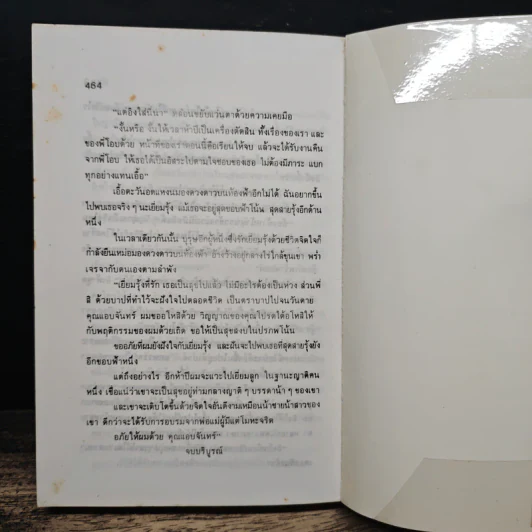 484
"แต่อิงใส่นี่นา" ตะวันขยับแว่นตาด้วยความเคยมือ
"งั้นหรือ งั้นให้เวลาห้าปีเป็นเครื่องตัดสิน ทั้งเรื่องของเรา และ
ของพี่โอบด้วย หน้าที่ของเราตอนนี้คือเรียนให้จบ แล้วจะได้รับงานคืน
จากพี่โอบ ให้เธอได้เป็นอิสระไปตามใจชอบของเธอ ไม่ต้องมีภาระ แบก
ทุกอย่างแทนเอื้อ"
เอื้อตะวันอดแหงนมองดวงดาวบนท้องฟ้าอีกไม่ได้ ฉันอยากขึ้น
ไปพบเธอจริง ๆ นะเยี่ยมรุ้ง แม้เธอจะอยู่สุดขอบฟ้าโน้น สุดสายรุ้งอีกด้าน
หนึ่ง
ในเวลาเดียวกันนั้น บุรุษอีกผู้หนึ่งซึ่งรักเยี่ยมรุ้งด้วยชีวิตจิตใจก็
กำลังยืนเหม่อมองดวงดาวบนท้องฟ้า อ้างว้างอยู่กลางไร่ใกล้ขุนเขา พร่ำ
เจรจากับตนเองตามลำพัง
"เยี่ยมรุ้งที่รัก เธอเป็นสุขไปแล้ว ไม่มีอะไรต้องเป็นห่วง ส่วนพี่
สิ ด้วยบาปที่ทำไว้จะฝังใจไปตลอดชีวิต เป็นตราบาปไปจนวันตาย
คุณแอบจันทร์ ผมขออโหสิด้วย วิญญาณของคุณโปรดได้อโหสิให้
กับพฤติกรรมของผมด้วยเถิด ขอให้เป็นสุขสงบในปรภพโน้น
ขออภัยที่ผมยังฝังใจกับเยี่ยมรุ้ง และฝันจะไปพบเธอที่สุดสายรุ้งยัง
อีกขอบฟ้าหนึ่ง
แต่ถึงอย่างไร อีกห้าปีผมจะแวะไปเยี่ยมลูก ในฐานะญาติคน
หนึ่ง เชื่อแน่ว่าเขาจะเป็นสุขอยู่ท่ามกลางญาติ ๆ บรรดาน้า ๆ ของเขา
และเขาจะเติบโตขึ้นด้วยจิตใจอันดีงามเหมือนน้าชายน้าสาวของ
เขา ดีกว่าจะได้รับการอบรมจากพ่อแม่ผู้มีแต่โมหะจริต
อภัยให้ผมด้วย คุณแอบจันทร์"
จบบริบูรณ์